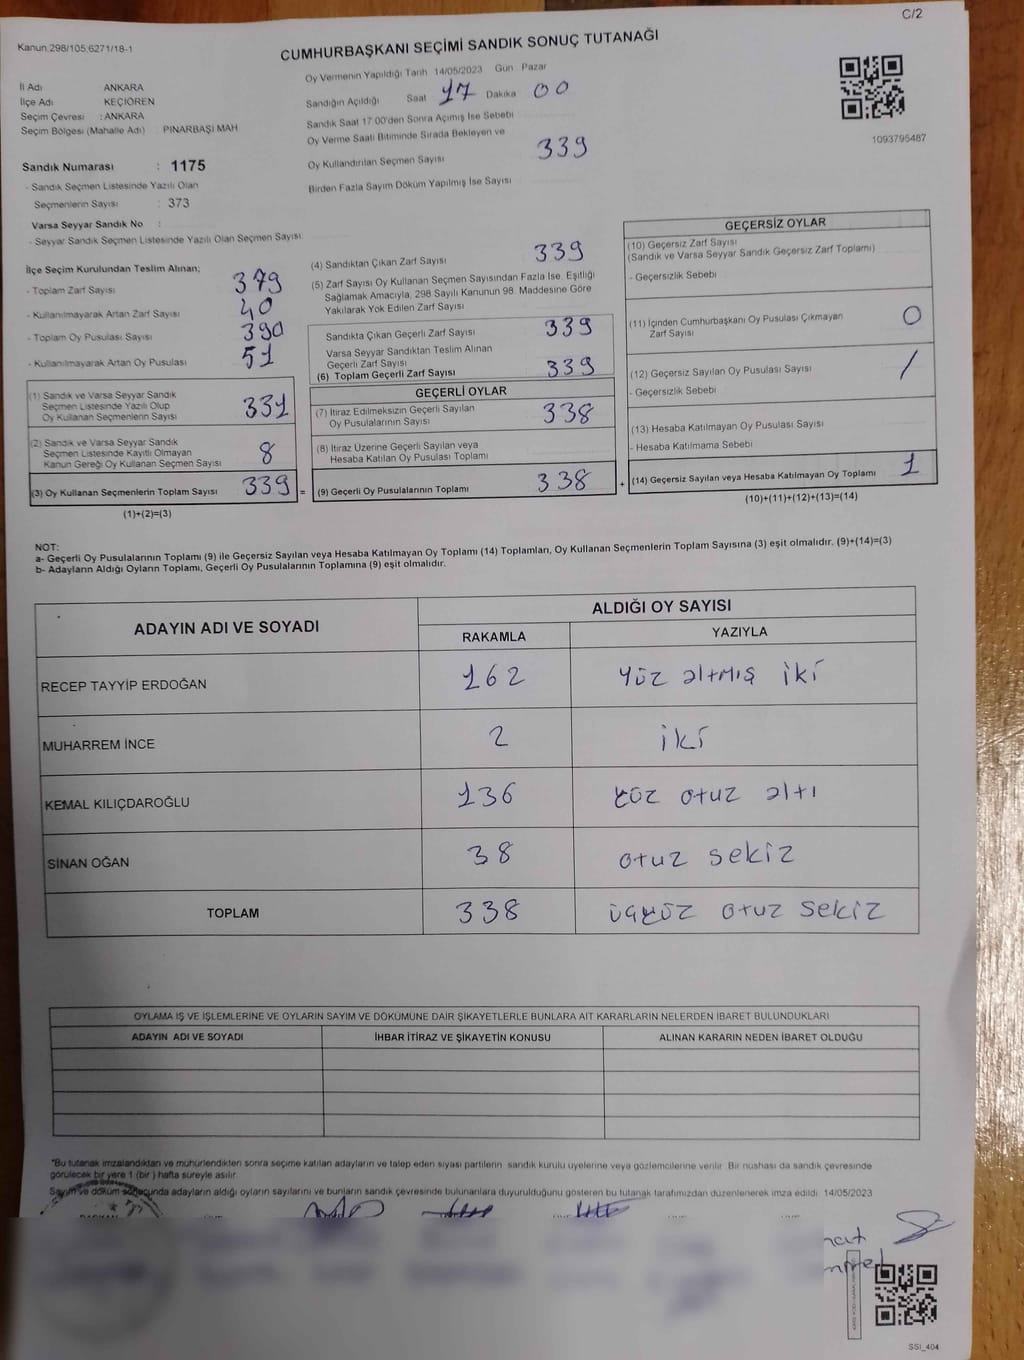 C/2
Kanun.298/105.6271/18-1
CUMHURBAŞKANI SEÇİMİ SANDIK SONUÇ TUTANAĞI
İl Adı ANKARA
İlçe Adı KEÇİÖREN
Seçim Çevresi : ANKARA
Seçim Bölgesi (Mahalle Adı) : PINARBAŞI MAH
Sandık Numarası : 1175
- Sandık Seçmen Listesinde Yazılı Olan
Seçmenlerin Sayısı : 373
Varsa Seyyar Sandık No :
- Seyyar Sandık Seçmen Listesinde Yazılı Olan Seçmen Sayısı:
Oy Vermenin Yapıldığı Tarih 14/05/2023 Gün Pazar
Sandığın Açıldığı Saat 17 Dakika 00
Sandık Saat 17:00'den Sonra Açımış İse Sebebi
Oy Verme Saati Bitiminde Sırada Bekleyen ve
Oy Kullandırılan Seçmen Sayısı 339
Birden Fazla Sayım Döküm Yapılmış İse Sayısı
1093795487
İlçe Seçim Kurulundan Teslim Alınan;
- Toplam Zarf Sayısı 379
- Kullanılmayarak Artan Zarf Sayısı 40
- Toplam Oy Pusulası Sayısı 390
- Kullanılmayarak Artan Oy Pusulası 51
(1) Sandık ve Varsa Seyyar Sandık
Seçmen Listesinde Yazılı Olup
Oy Kullanan Seçmenlerin Sayısı 331
(2) Sandık ve Varsa Seyyar Sandık
Seçmen Listesinde Kayıtlı Olmayan
Kanun Gereği Oy Kullanan Seçmen Sayısı 8
(3) Oy Kullanan Seçmenlerin Toplam Sayısı 339 =
(1)+(2)=(3)
(4) Sandıktan Çıkan Zarf Sayısı 339
(5) Zarf Sayısı Oy Kullanan Seçmen Sayısından Fazla İse, Eşitliği
Sağlamak Amacıyla, 298 Sayılı Kanunun 98. Maddesine Göre
Yakılarak Yok Edilen Zarf Sayısı
Sandıkta Çıkan Geçerli Zarf Sayısı 339
Varsa Seyyar Sandıktan Teslim Alınan
Geçerli Zarf Sayısı
(6) Toplam Geçerli Zarf Sayısı 339
GEÇERLİ OYLAR
(7) İtiraz Edilmeksizin Geçerli Sayılan
Oy Pusulalarının Sayısı 338
(8) İtiraz Üzerine Geçerli Sayılan veya
Hesaba Katılan Oy Pusulası Toplamı
(9) Geçerli Oy Pusulalarının Toplamı 338 +
GEÇERSİZ OYLAR
(10) Geçersiz Zarf Sayısı
(Sandık ve Varsa Seyyar Sandık Geçersiz Zarf Toplamı)
- Geçersizlik Sebebi
(11) İçinden Cumhurbaşkanı Oy Pusulası Çıkmayan
Zarf Sayısı 0
(12) Geçersiz Sayılan Oy Pusulası Sayısı /
- Geçersizlik Sebebi
(13) Hesaba Katılmayan Oy Pusulası Sayısı
- Hesaba Katılmama Sebebi
(14) Geçersiz Sayılan veya Hesaba Katılmayan Oy Toplamı 1
(10)+(11)+(12)+(13)=(14)
NOT:
a- Geçerli Oy Pusulalarının Toplamı (9) ile Geçersiz Sayılan veya Hesaba Katılmayan Oy Toplamı (14) Toplamları, Oy Kullanan Seçmenlerin Toplam Sayısına (3) eşit olmalıdır. (9)+(14)=(3)
b- Adayların Aldığı Oyların Toplamı, Geçerli Oy Pusulalarının Toplamına (9) eşit olmalıdır.
ADAYIN ADI VE SOYADI ALDIĞI OY SAYISI
RAKAMLA YAZIYLA
RECEP TAYYİP ERDOĞAN 162 yüz altmış iki
MUHARREM İNCE 2 iki
KEMAL KILIÇDAROĞLU 136 yüz otuz altı
SİNAN OĞAN 38 otuz sekiz
TOPLAM 338 üçyüz otuz sekiz
OYLAMA İŞ VE İŞLEMLERİNE VE OYLARIN SAYIM VE DÖKÜMÜNE DAİR ŞİKAYETLERLE BUNLARA AİT KARARLARIN NELERDEN İBARET BULUNDUKLARI
ADAYIN ADI VE SOYADI İHBAR İTİRAZ VE ŞİKAYETİN KONUSU ALINAN KARARIN NEDEN İBARET OLDUĞU
*Bu tutanak imzalandıktan ve mühürlendikten sonra seçime katılan adayların ve talep eden siyasi partilerin sandık kurulu üyelerine veya gözlemcilerine verilir. Bir nushası da sandık çevresinde
görülecek bir yere 1 (bir ) hafta süreyle asılır
Sayım ve döküm sonucunda adayların aldığı oyların sayılarını ve bunların sandık çevresinde bulunanlara duyurulduğunu gösteren bu tutanak tarafımızdan düzenlenerek imza edildi. 14/05/2023
SSI_404